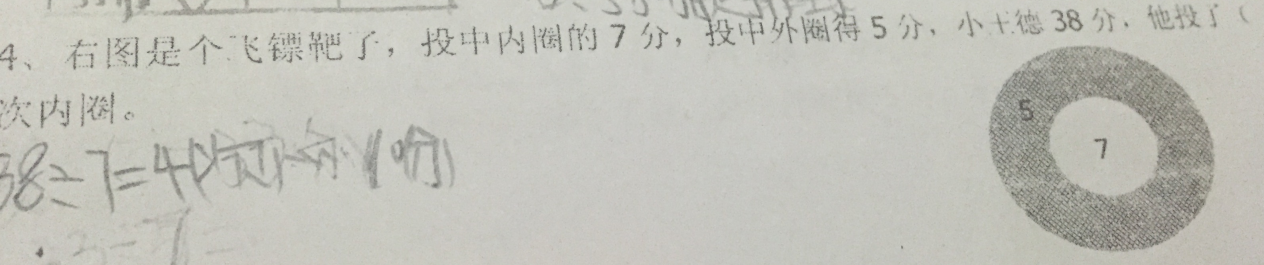 4、右图是个飞镖靶了，投中内圈的7分，投中外圈得5分，小王德38分，他投了（
次内圈。
5
7
38÷7=4